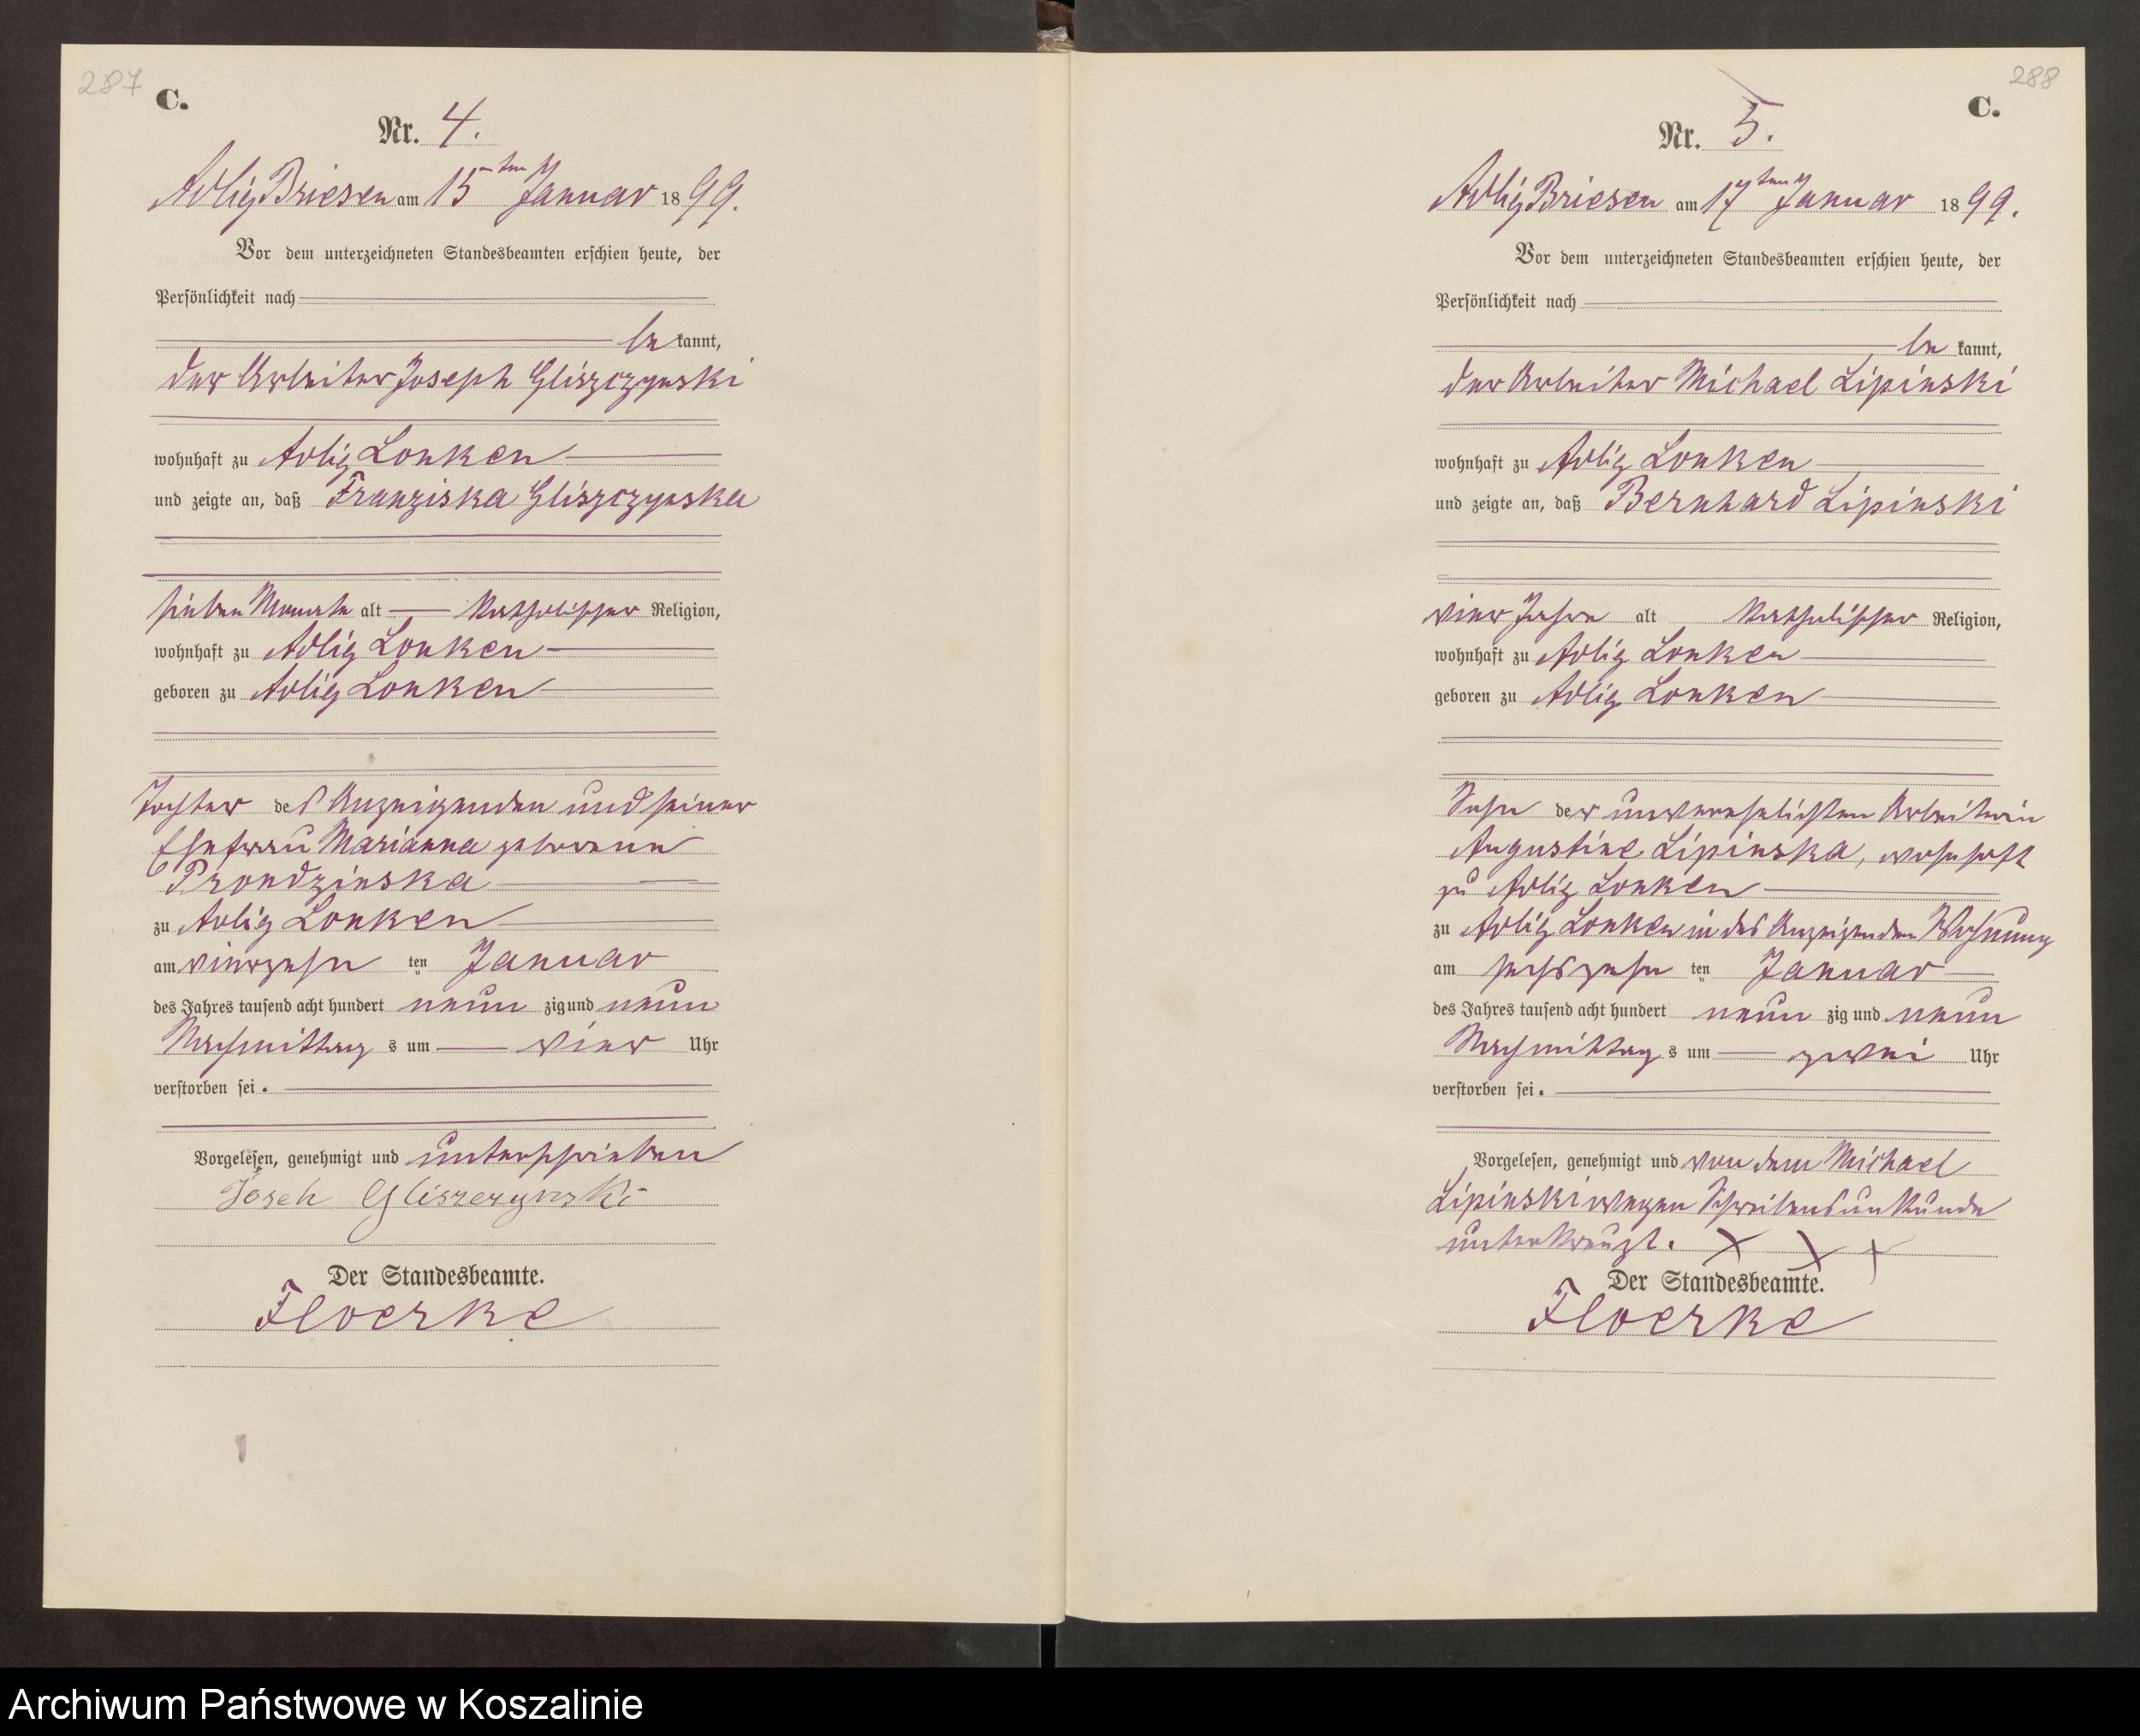 287
C.
Nr. 4.
Adlig Briesen am 15ten Januar 1899.
Vor dem unterzeichneten Standesbeamten erschien heute, der
Persönlichkeit nach
bekannt,
der Arbeiter Joseph Gliszczynski
wohnhaft zu Adlig Lonken
und zeigte an, daß Franziska Gliszczynska
sieben Monate alt katholischer Religion,
wohnhaft zu Adlig Lonken
geboren zu Adlig Lonken
Tochter des Anzeigenden und seiner
Ehefrau Marianna geborene
Prondzinska
zu Adlig Lonken
am vierzehnten Januar
des Jahres tausend acht hundert neunzig und neun
Nachmittags um vier Uhr
verstorben sei.
Vorgelesen, genehmigt und unterschrieben
Joseh Gliszczynski
Der Standesbeamte.
Floerke
288
C.
Nr. 5.
Adlig Briesen am 17ten Januar 1899.
Vor dem unterzeichneten Standesbeamten erschien heute, der
Persönlichkeit nach
bekannt,
der Arbeiter Michael Lipinski
wohnhaft zu Adlig Lonken
und zeigte an, daß Bernhard Lipinski
vier Jahre alt katholischer Religion,
wohnhaft zu Adlig Lonken
geboren zu Adlig Lonken
Sohn der unverehelichten Arbeiterin
Augustine Lipinska, wohnhaft
zu Adlig Lonken
zu Adlig Lonken in des Anzeigenden Wohnung
am sechszehnten Januar
des Jahres tausend acht hundert neunzig und neun
Nachmittags um zwei Uhr
verstorben sei.
Vorgelesen, genehmigt und von dem Michael
Lipinski wegen Schreibensunkunde
unterkreuzt. X X X
Der Standesbeamte.
Floerke
Archiwum Państwowe w Koszalinie